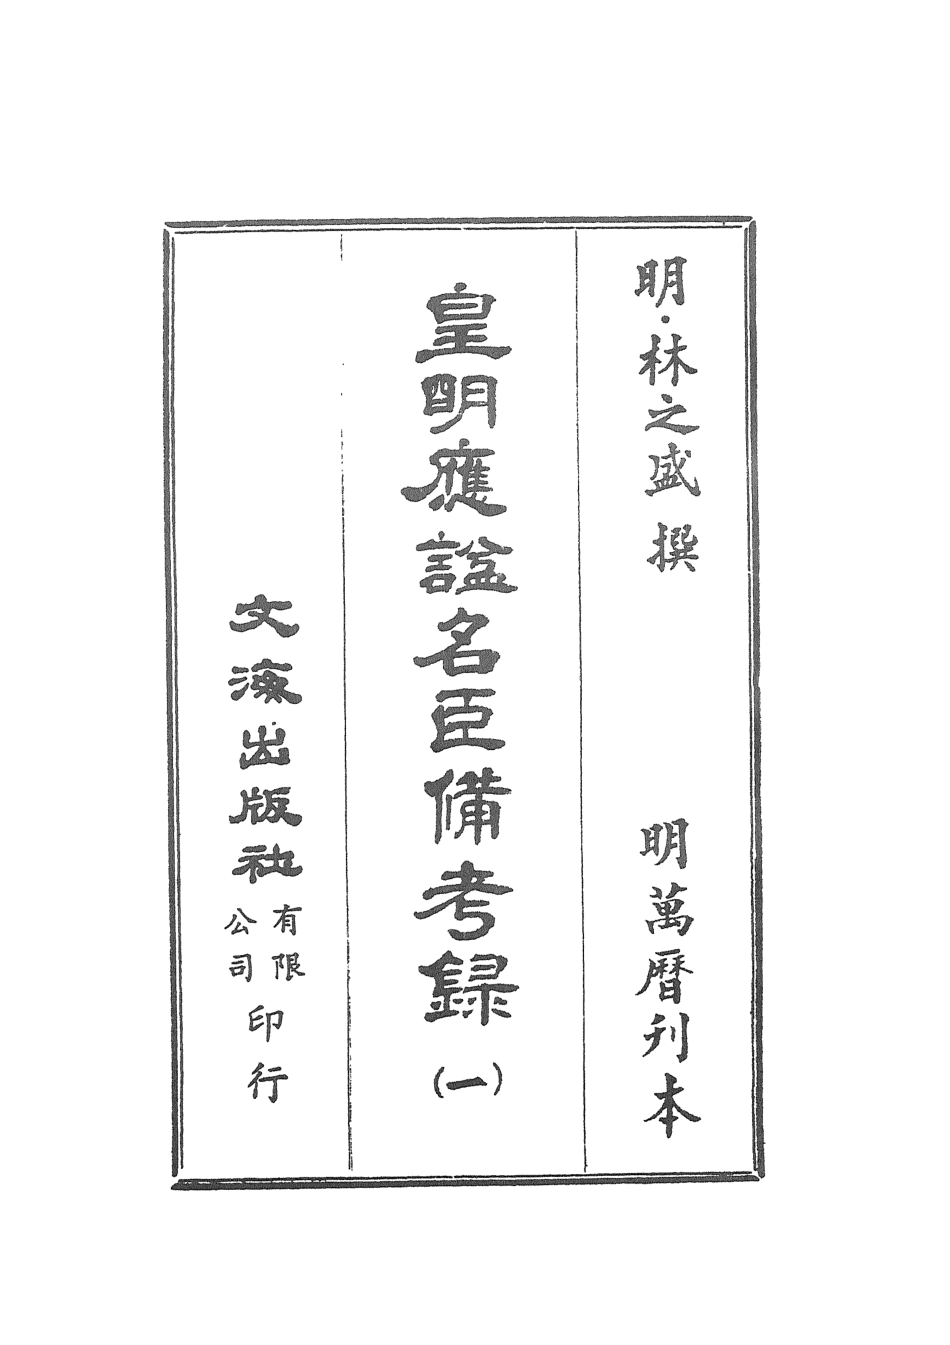 明·林之盛 撰
明萬曆刊本
皇明應謚名臣備考録(一)
文海出版社有限公司印行